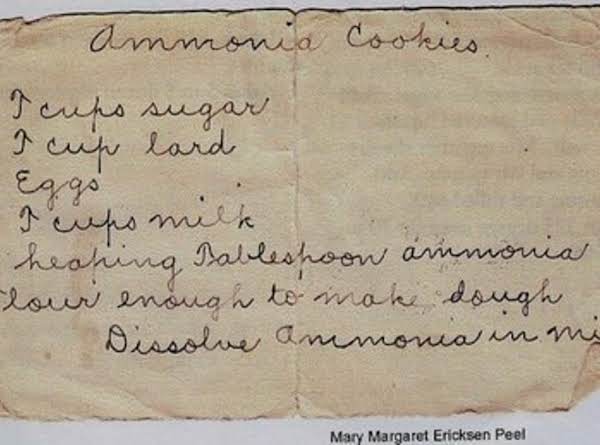 Ammonia Cookies.
T cups sugar
T cup lard
Eggs
T cups milk
heaping Tablespoon ammonia
lour enough to make dough
Dissolve Ammonia in mi
Mary Margaret Ericksen Peel